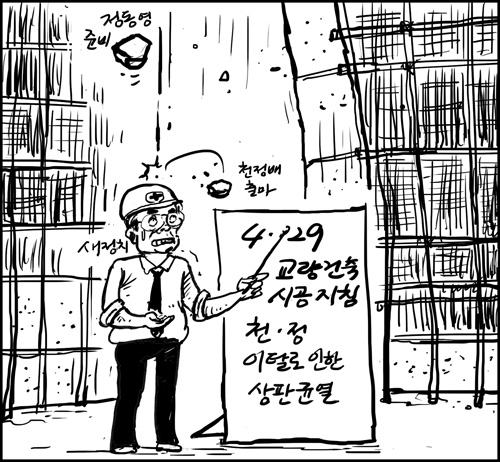 정동영
준비
천정배
출마
새정치
4·29
교량건축
시공지침
천·정
이탈로 인한
상판균열